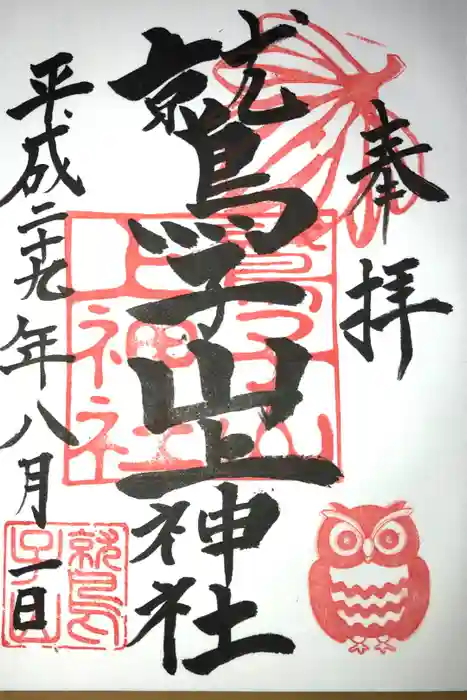 奉拝
鷲子山上神社
平成二十九年八月一日
鷲子山
上神社
鷲子山